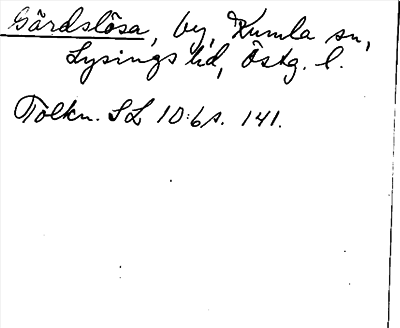 Gärdslösa, by, Kumla sn,
Lysings hd, Östg. l.
Tolkn. SL 10:6 s. 141.